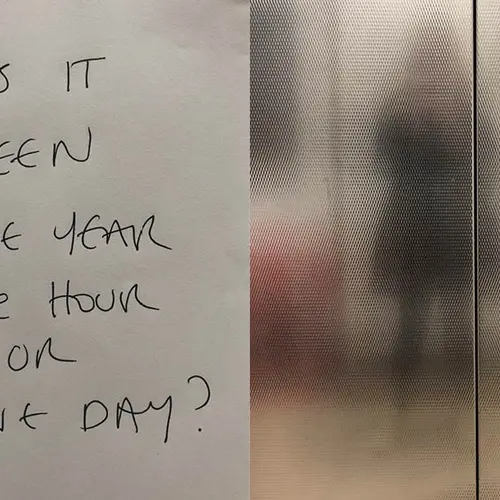 S IT
EEN
E YEAR
E HOUR
OR
NE DAY?